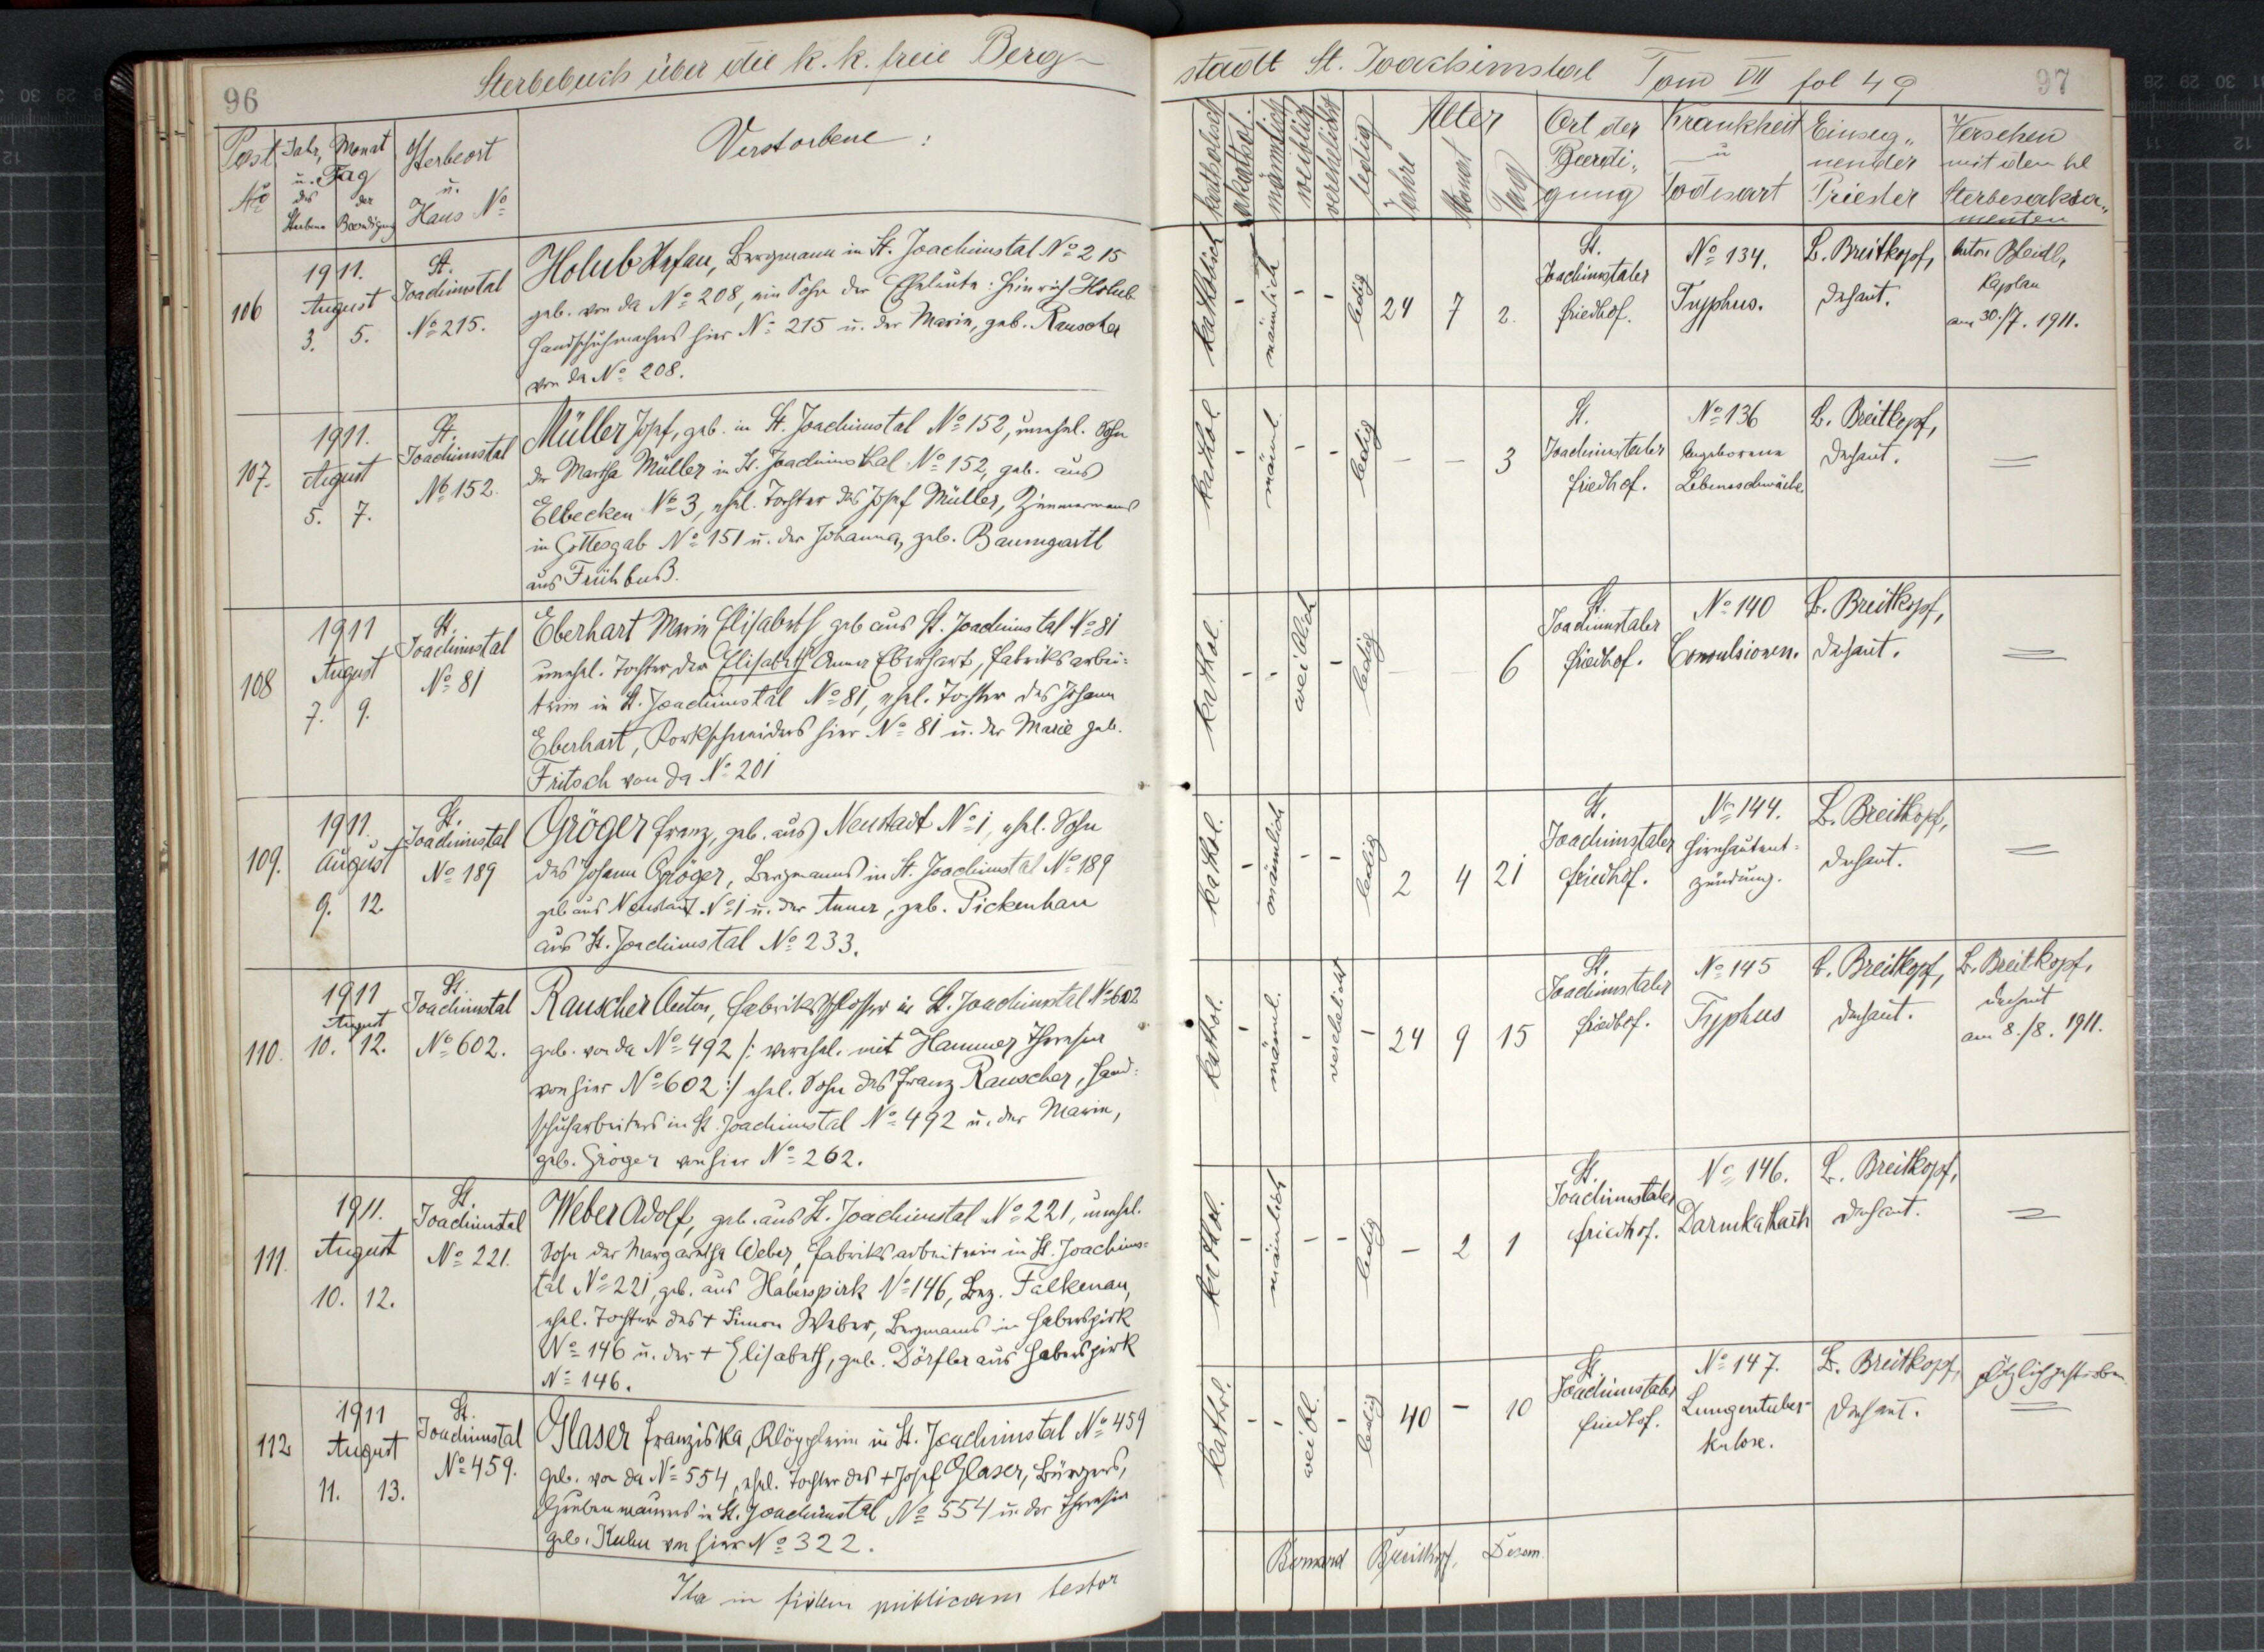 96
Sterbebuch über die k. k. freie Berg-
Post No
Jahr, Monat
u. Tag
des Sterbens
der Beerdigung
Sterbeort
u.
Haus No
Verstorbene:
106
1911.
August
3. 5.
St.
Joachimstal
No 215.
Holub Stefan, Bergmann in St. Joachimstal No 215
geb. von da No 208, ein Sohn der Eheleute: Heinrich Holub
Handschuhmachers hier No 215 u. der Marie, geb. Rauscher
von da No 208.
107.
1911.
August
5. 7.
St.
Joachimstal
No 152.
Müller Josef, geb. in St. Joachimstal No 152, unehel. Sohn
der Martha Müller in St. Joachimsthal No 152, geb. aus
Elbecken No 3, ehel. Tochter des Josef Müller, Zimmermanns
in Gottesgab No 151 u. der Johanna, geb. Baumgartl
aus Frühbuß.
108
1911
August
7. 9.
St.
Joachimstal
No 81
Eberhart Marie Elisabeth geb. aus St. Joachimstal No 81
unehel. Tochter der Elisabeth Anna Eberhart, Fabriksarbei-
terin in St. Joachimstal No 81, ehel. Tochter des Johann
Eberhart, Korkschneiders hier No 81 u. der Marie geb.
Fritsch von da No 201
109.
1911.
August
9. 12.
St.
Joachimstal
No 189
Gröger Franz, geb. aus Neustadt No 1, ehel. Sohn
des Johann Gröger, Bergmanns in St. Joachimstal No 189
geb. aus Neustadt No 1 u. der Anna, geb. Pickenhan
aus St. Joachimstal No 233.
110.
1911
August
10. 12.
St.
Joachimstal
No 602.
Rauscher Anton, Fabriksschlosser in St. Joachimstal No 602
geb. von da No 492 /: verehel. mit Hammer Theresia
von hier No 602 :/ ehel. Sohn des Franz Rauscher, Hand-
schuharbeiters in St. Joachimstal No 492 u. der Marie,
geb. Gröger von hier No 262.
111.
1911.
August
10. 12.
St.
Joachimstal
No 221.
Weber Adolf, geb. aus St. Joachimstal No 221, unehel.
Sohn der Margaretha Weber, Fabriksarbeiterin in St. Joachims-
tal No 221, geb. aus Haberspirk No 146, Bez. Falkenau,
ehel. Tochter des + Simon Weber, Bergmanns in Haberspirk
No 146 u. der + Elisabeth, geb. Dörfler aus Haberspirk
No 146.
112
1911
August
11. 13.
St.
Joachimstal
No 459.
Glaser Franziska, Klöpplerin in St. Joachimstal No 459
geb. von da No 554, ehel. Tochter des + Josef Glaser, Bürgers,
in St. Joachimstal No 554 u. der Theresia
geb. Kuhn von hier No 322.
Ita in fidem publicam testor
stadt St. Joachimstal Tom VII fol 49
97
katholisch
akathol.
männlich
weiblich
verehelicht
ledig
Alter
Jahre
Monat
Tag
Ort der
Beerdi-
gung
Krankheit
u
Todesart
Einseg-
nender
Priester
Versehen
mit den hl
Sterbesakra-
menten
katholisch - männlich - - ledig 24 7 2.
St.
Joachimstaler
Friedhof.
No 134.
Typhus.
B. Breitkopf,
Dechant.
Anton Bleidl,
Kaplan
am 30./7. 1911.
kathol. - männl. - - ledig — — 3
St.
Joachimstaler
Friedhof.
No 136
Angeborene
Lebensschwäche.
B. Breitkopf,
Dechant.
kathol. - - weiblich - ledig — — 6
St.
Joachimstaler
Friedhof.
No 140
Convulsionen.
B. Breitkopf,
Dechant.
kathol. - männlich - - ledig 2 4 21
St.
Joachimstaler
Friedhof.
No 144.
Hirnhautent-
zündung.
B. Breitkopf,
Dechant.
kathol. - männl. - verehelicht - 24 9 15
St.
Joachimstaler
Friedhof.
No 145
Typhus
B. Breitkopf,
Dechant.
B. Breitkopf,
Dechant
am 8./8. 1911.
kathol. - männlich - - ledig — 2 1
St.
Joachimstaler
Friedhof.
No 146.
Darmkatharh
B. Breitkopf,
Dechant.
kathol. - - weibl. - ledig 40 - 10
St.
Joachimstaler
Friedhof.
No 147.
Lungentuber-
kulose.
B. Breitkopf,
Dechant.
plötzlich gestorben
Bernard Breitkopf, Decan.